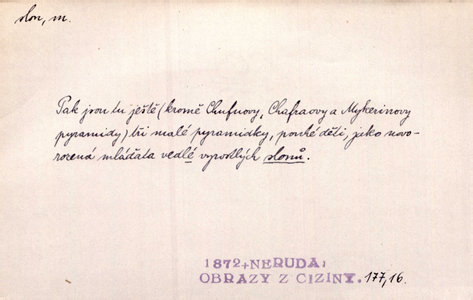 slon, m.
Tak jsou tu ještě (kromě Chufuovy, Chafraovy a Mykerinovy
pyramidy) tři malé pyramidky, pouhé děti, jako novo-
rozená mláďata vedlé vyrostlých slonů.
1872+NERUDA,
OBRAZY Z CIZINY. 177,16.